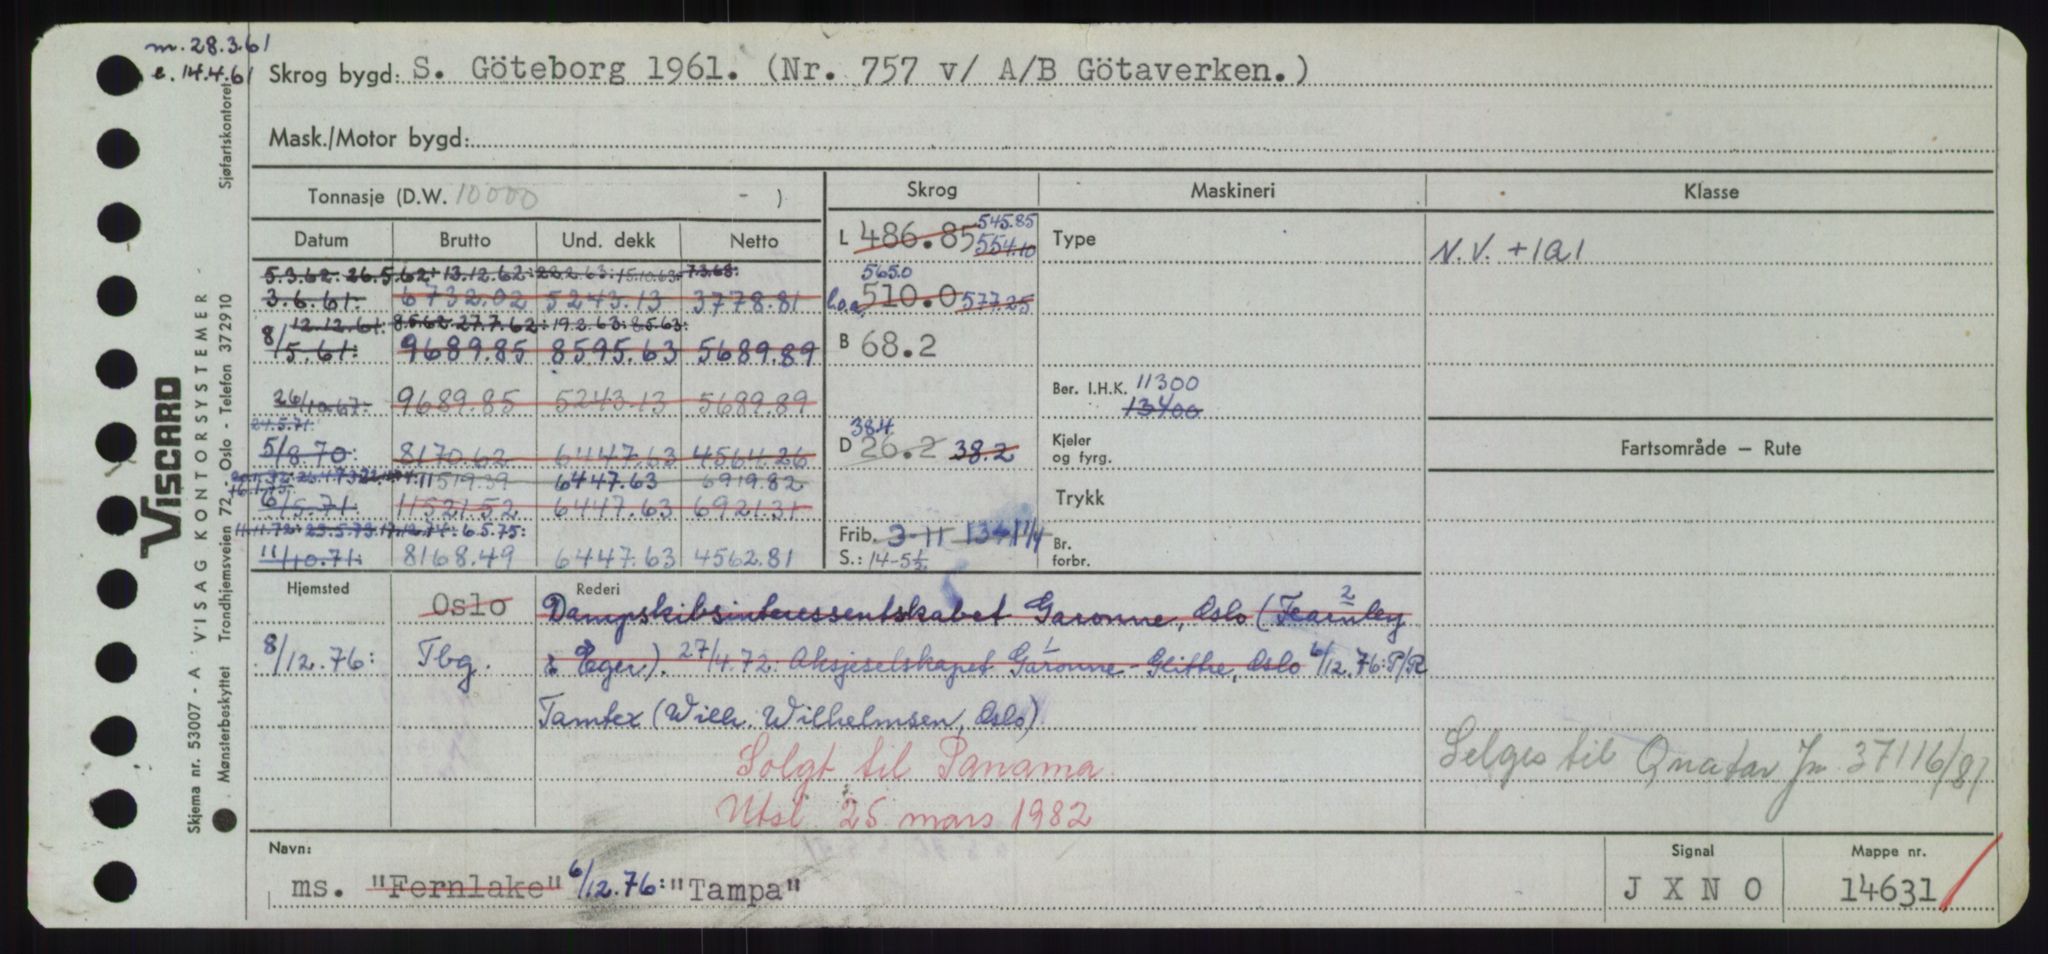 m. 28.3.61
e. 14.4.61
Skrog bygd: S. Göteborg 1961. (Nr. 757 v/ A/B Götaverken.)
Mask./Motor bygd:
Tonnasje (D.W. 10000 - )
Skrog
Maskineri
Klasse
Datum Brutto Und. dekk Netto
L 486.85 545.85
554.10
Type
N.V. +1A1
5.3.62: 26.5.62: 13.12.62: 22.2.63: 15.10.63: 7.3.68:
3.6.61: 6732.02 5243.13 3778.81
565.0
l.o.a. 510.0 577.25
12.12.61: 8.5.62 27.7.62: 19.2.63: 8.5.63:
8/5.61: 9689.85 8595.63 5689.89
B 68.2
26/10.67: 9689.85 5243.13 5689.89
Ber. I.H.K. 11300
13400
24.5.71
5/8.70: 8170.62 6447.63 4564.26
38.4
D 26.2 38.2
Kjeler
og fyrg.
Fartsområde — Rute
11519.39 6447.63 6919.82
6/5.71: 11521.52 6447.63 6921.31
Trykk
11.11.72: 6.5.75:
11/10.71: 8168.49 6447.63 4562.81
Frib. 3-11 13-11 1/4
S.: 14-5½
Br.
forbr.
Hjemsted
Rederi
Oslo Dampskibsinteressentskabet Garonne, Oslo (Fearnley
8/12.76: Tbg. & Eger). 27/4.72: Aksjeselskapet Garonne-Glittre, Oslo 6/12.76: P/R
Tamtex (Wilh. Wilhelmsen, Oslo)
Solgt til Panama
Selges til Qnatar Jn. 37116/81
Utsl. 25. mars 1982
Navn:
ms. "Fernlake" 6/12.76: "Tampa"
Signal
J X N O
Mappe nr.
14631
Sjøfartskontoret
VISCARD
VISAG KONTORSYSTEMER
Trondhjemsveien 72 - Oslo - Telefon 372910
Skjema nr. 53007 - A
Mønsterbeskyttet